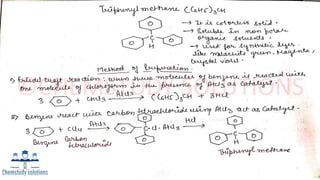 Triphenyl methane (C6H5)3CH
→ It is colorless solid.
→ Soluble in non polar
organic solvents.
→ used for synthetic dyes
like malachite green, reagents,
crystal violet.
C
H
Method of
1) Friedel craft reaction: when three molecules of benzene is reacted with
one molecule of chloroform in the presence of AlCl3 as catalyst.
3 + CHCl3 AlCl3 → (C6H5)3CH + 3HCl
2) Benzene react with carbon tetrachloride using AlCl3 act as catalyst.
3 + CCl4 AlCl3 → C-Cl. AlCl3 HCl → C
H
Benzene Carbon
tetrachloride
Triphenyl methane
Chemstudy solutions